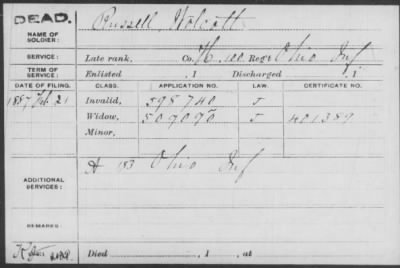 DEAD.
NAME OF SOLDIER:
Russell, Wolcott
SERVICE:
Late rank, Co. H, 100 Reg't Ohio Inf
TERM OF SERVICE:
Enlisted , 1 Discharged , 1
DATE OF FILING. CLASS. APPLICATION NO. LAW. CERTIFICATE NO.
1887, Feb 21 Invalid, 598740 J
Widow, 509090 J 401389
Minor,
ADDITIONAL SERVICES:
A 183 Ohio Inf
REMARKS:
Died , 1 , at